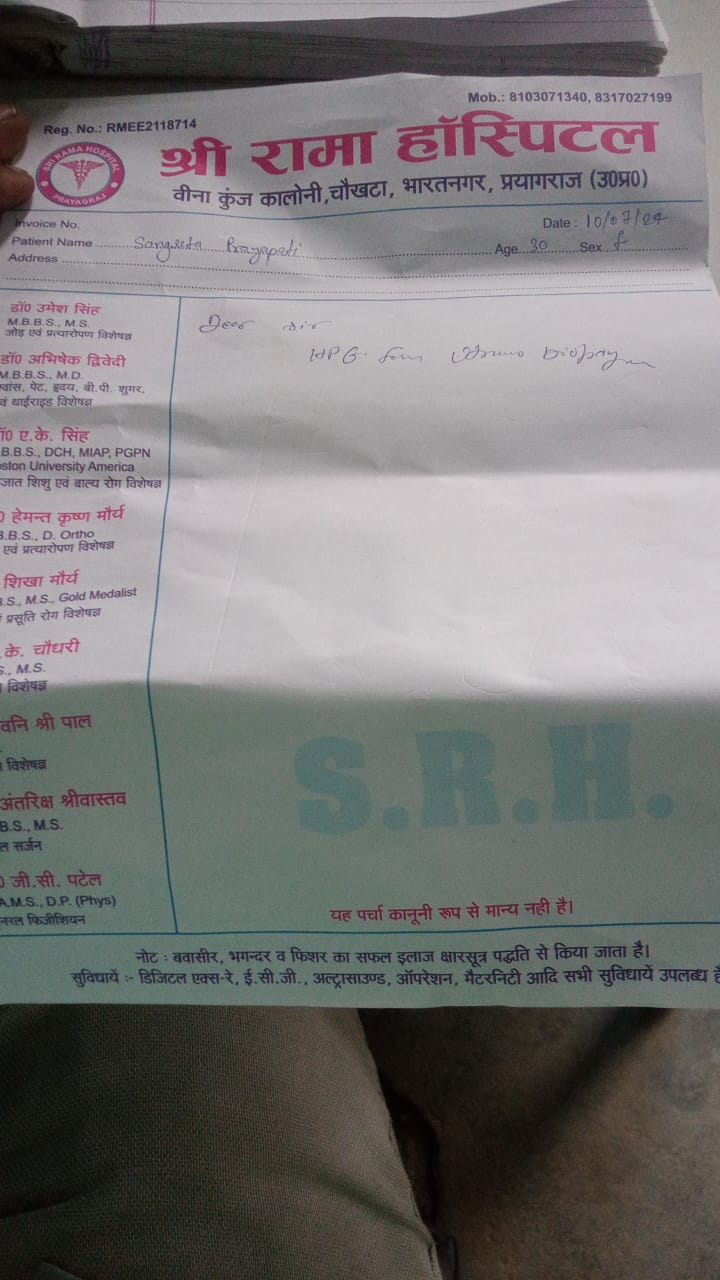 Mob.: 8103071340, 8317027199
Reg. No.: RMEE2118714
SRI RAMA HOSPITAL
PRAYAGRAJ
श्री रामा हॉस्पिटल
वीना कुंज कालोनी,चौखटा, भारतनगर, प्रयागराज (उ0प्र0)
Invoice No.
Date : 10/07/24
Patient Name Sangeeta Prajapati Age 30 Sex f
Address
डॉ0 उमेश सिंह
M.B.B.S., M.S.
जोड़ एवं प्रत्यारोपण विशेषज्ञ
डॉ0 अभिषेक द्विवेदी
M.B.B.S., M.D.
वांस, पेट, हृदय, बी.पी. शुगर,
वं थाईराइड विशेषज्ञ
ॉ0 ए.के. सिंह
.B.B.S., DCH, MIAP, PGPN
ston University America
जात शिशु एवं बाल्य रोग विशेषज्ञ
0 हेमन्त कृष्ण मौर्य
.B.S., D. Ortho
एवं प्रत्यारोपण विशेषज्ञ
शिखा मौर्य
.S., M.S., Gold Medalist
प्रसूति रोग विशेषज्ञ
.के. चौधरी
S., M.S.
विशेषज्ञ
वनि श्री पाल
विशेषज्ञ
अंतरिक्ष श्रीवास्तव
B.S., M.S.
ल सर्जन
0 जी.सी. पटेल
A.M.S., D.P. (Phys)
नरल फिजीशियन
Dear sir
HPG. Biopsy
S.R.H.
यह पर्चा कानूनी रूप से मान्य नही है।
नोट : बवासीर, भगन्दर व फिशर का सफल इलाज क्षारसूत्र पद्धति से किया जाता है।
सुविधायें :- डिजिटल एक्स-रे, ई.सी.जी., अल्ट्रासाउण्ड, ऑपरेशन, मैटरनिटी आदि सभी सुविधायें उपलब्ध है